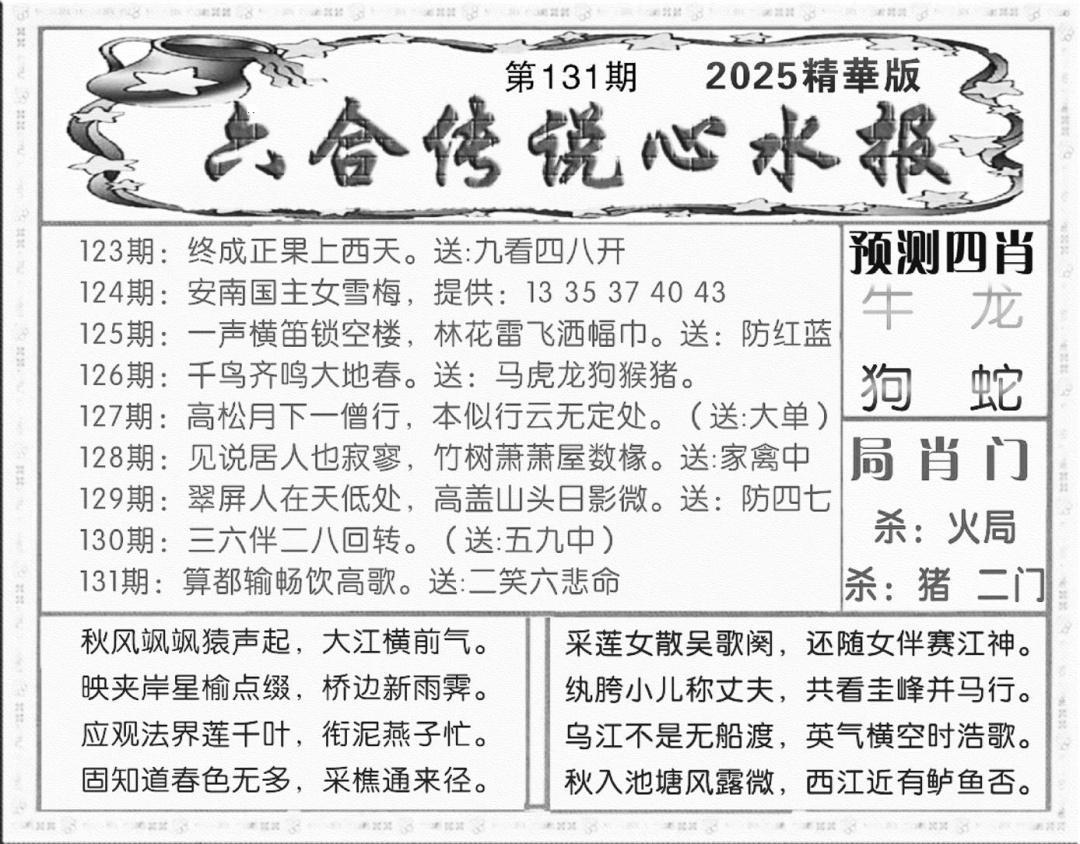 第131期 2025精華版
六合传说心水报
123期：终成正果上西天。送:九看四八开
124期：安南国主女雪梅，提供：13 35 37 40 43
125期：一声横笛锁空楼，林花雷飞洒幅巾。送：防红蓝
126期：千鸟齐鸣大地春。送：马虎龙狗猴猪。
127期：高松月下一僧行，本似行云无定处。（送:大单）
128期：见说居人也寂寥，竹树萧萧屋数椽。送:家禽中
129期：翠屏人在天低处，高盖山头日影微。送：防四七
130期：三六伴二八回转。（送:五九中）
131期：算都输畅饮高歌。送:二笑六悲命
预测四肖
牛 龙
狗 蛇
局肖门
杀：火局
杀：猪 二门
秋风飒飒猿声起，大江横前气。
映夹岸星榆点缀，桥边新雨霁。
应观法界莲千叶，衔泥燕子忙。
固知道春色无多，采樵通来径。
采莲女散吴歌阕，还随女伴赛江神。
纨胯小儿称丈夫，共看圭峰并马行。
乌江不是无船渡，英气横空时浩歌。
秋入池塘风露微，西江近有鲈鱼否。